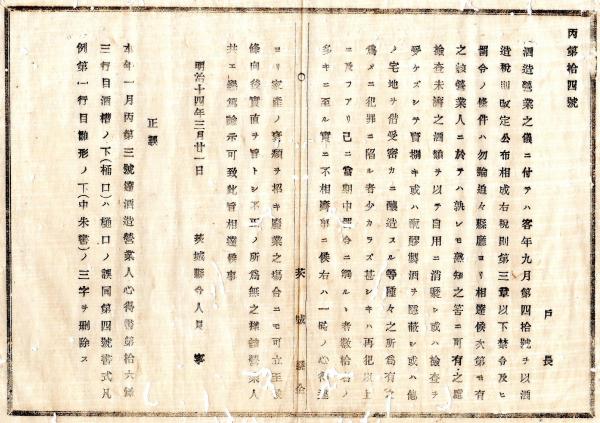 丙第拾四號
戸長
酒造營業之儀ニ付テハ客年九月第四拾號ヲ以酒
造税則改定公布相成右税則第三章以下禁令及ヒ
罰令ノ條件ハ勿論追々縣廳ヨリ相達候次第モ有
之該營業人ニ於テハ孰レモ熟知之筈ニ可有之處
檢査未濟之酒類ヲ以テ自用ニ消費シ或ハ檢査ヲ
受ケズシテ賣捌キ或ハ醸製酒ヲ隱蔽シ或ハ他
ノ宅地ヲ借受密カニ醸造スル等種々之所爲有之
爲メニ犯罪ニ陷ル者少カラズ甚シキハ再犯以上
ニ及フアリ已ニ當期中罰令ニ觸ルヽ者數拾名ノ
多キニ至ル實ニ不相濟事ニ候右ハ一時ノ心得違
茨城縣令
ヨリ家産ノ 類ヲ招キ廢業之場合ニモ可立至候
條向後實直ヲ旨トシ不正ノ所爲無之樣該營業人
共エ 諭示可致此旨相達候事
明治十四年三月廿一日
茨城縣令人見寧
正誤
本年一月丙第三號達酒造營業人心得書第拾六條
三行目酒槽ノ下(桶口)ハ樋口ノ誤同第四號書式凡
例第一行目雛形ノ下(中朱書)ノ三字ヲ刪除ス